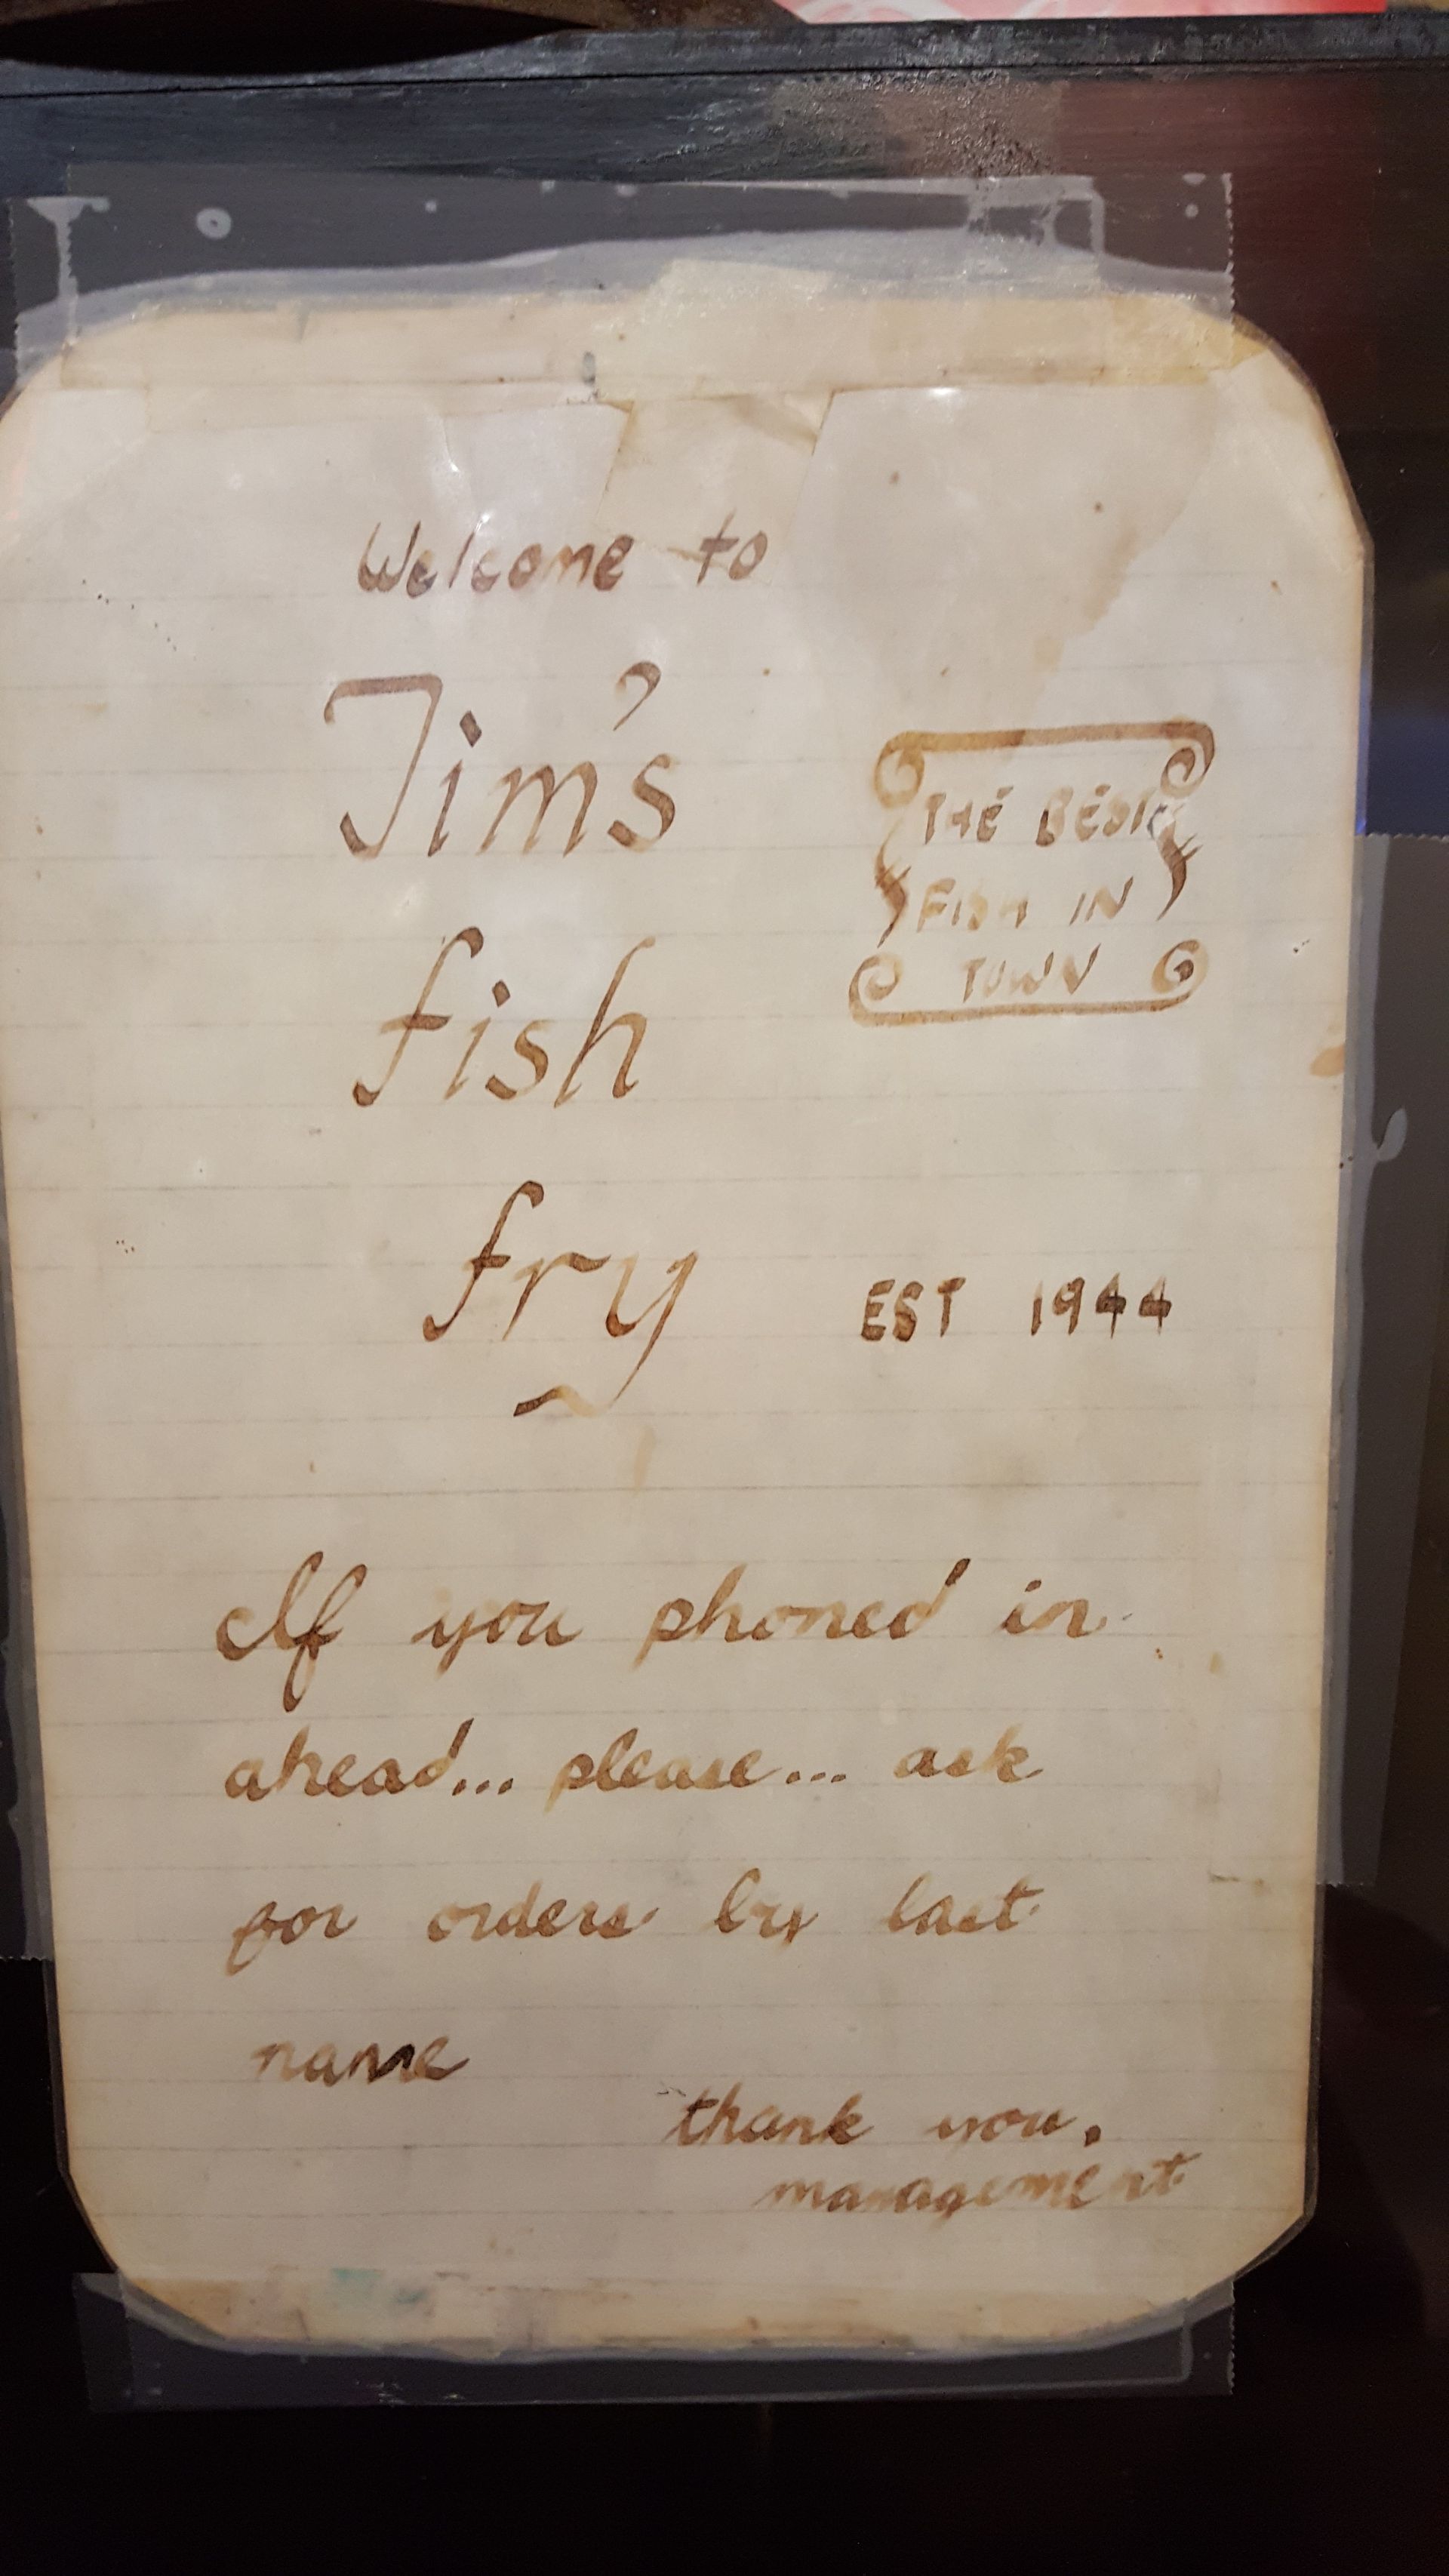 Welcome to
Jim's
THE BEST
FISH IN
TOWN
fish
fry
EST 1944
If you phoned in
ahead... please... ask
for orders by last
name
thank you.
management